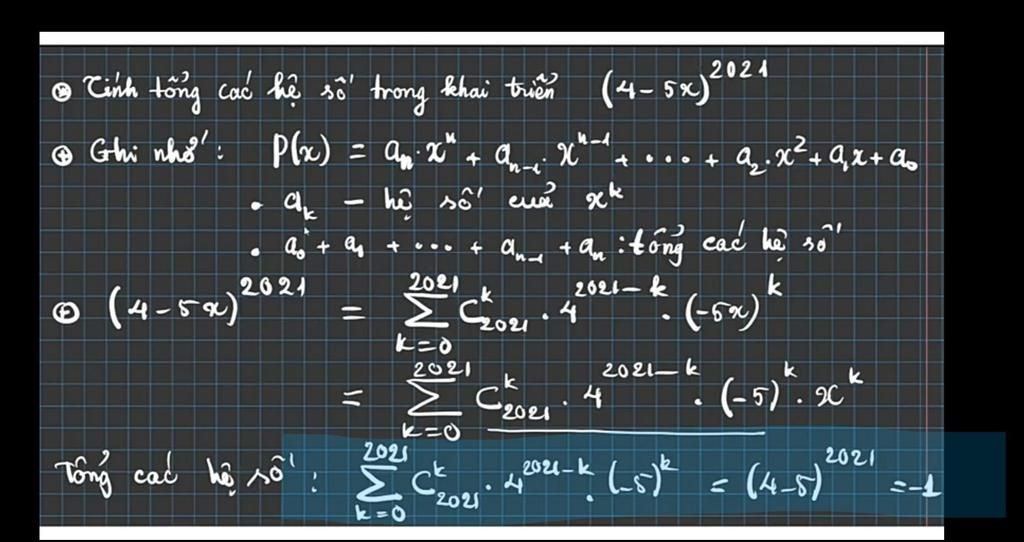 ⊛ Tính tổng các hệ số trong khai triển (4 - 5x)^2021
⊕ Ghi nhớ: P(x) = aₙ.xⁿ + aₙ₋₁.xⁿ⁻¹ + .... + a₂.x² + a₁x + a₀
• aₖ - hệ số của xᵏ
• a₀ + a₁ + .... + aₙ₋₁ + aₙ : tổng các hệ số
⊕ (4 - 5x)^2021 = ∑_{k=0}^{2021} C_{2021}^{k} . 4^{2021-k} . (-5x)^k
= ∑_{k=0}^{2021} C_{2021}^{k} . 4^{2021-k} . (-5)^k . x^k
Tổng các hệ số : ∑_{k=0}^{2021} C_{2021}^{k} . 4^{2021-k} . (-5)^k = (4-5)^{2021} = -1